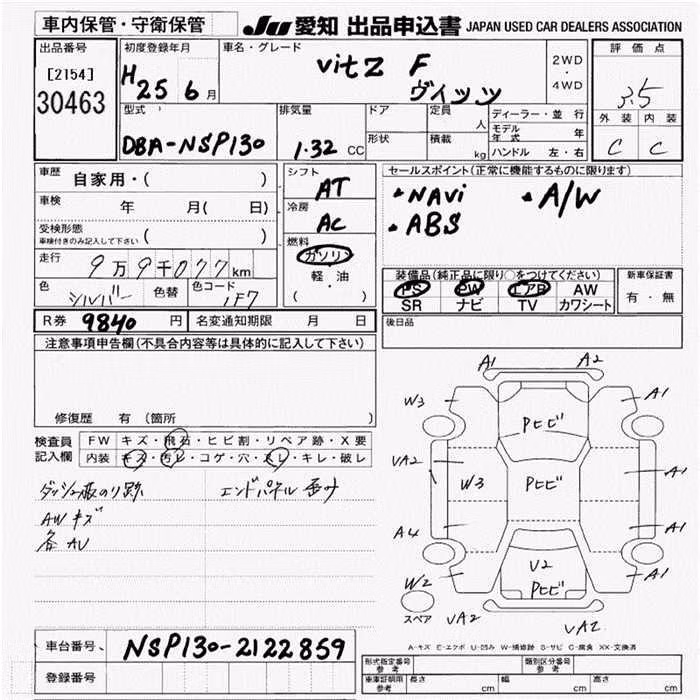 車内保管・守衛保管
JU 愛知 出品申込書 JAPAN USED CAR DEALERS ASSOCIATION
出品番号
[2154]
30463
初度登録年月
H25 6月
車名・グレード
vitz F
ヴィッツ
2WD
・
4WD
評価点
3.5
外装 内装
C C
型式
DBA-NSP130
排気量
1.32 CC
ドア
形状
定員
人
積載
kg
ディーラー・並行
モデル年式 年
ハンドル 左・右
車歴
自家用・( )
車検
年 月( 日)
受検形態
車検付きのみ記入して下さい ( )
走行
9万9千077km
色
シルバー
色替
色コード
1F7
シフト
AT
冷房
AC
燃料
ガソリン
軽・油
( )
セールスポイント(正常に機能するものに限ります)
・NAVi ・A/W
・ABS
装備品(純正品に限り○をつけてください)
PS PW エアB AW
SR ナビ TV カワシート
新車保証書
有・無
R券 9840円 名変通知期限 月 日
後日品
注意事項申告欄(不具合内容等は具体的に記入して下さい)
修復歴 有(箇所 )
検査員記入欄
FW キズ・飛石・ヒビ割・リペア跡・X要
内装 キズ・汚レ・コゲ・穴・スレ・キレ・破レ
ダッシュ板のり跡 エンドパネル歪み
AWキズ
各AU
A1 A2
W3 A1
Pヒビ
VA2 W3 Pヒビ A1
A4 A1
V2
Pヒビ
W2 A1
スペア
VA2 VA2
A-キズ E-エクボ U-凹み W-補修跡 S-サビ C-腐食 XX-交換済
車台番号 NSP130-2122859
登録番号
型式指定番号
参考
類別区分番号
参考
車庫証明用
参考
長さ cm
幅 cm
高さ cm